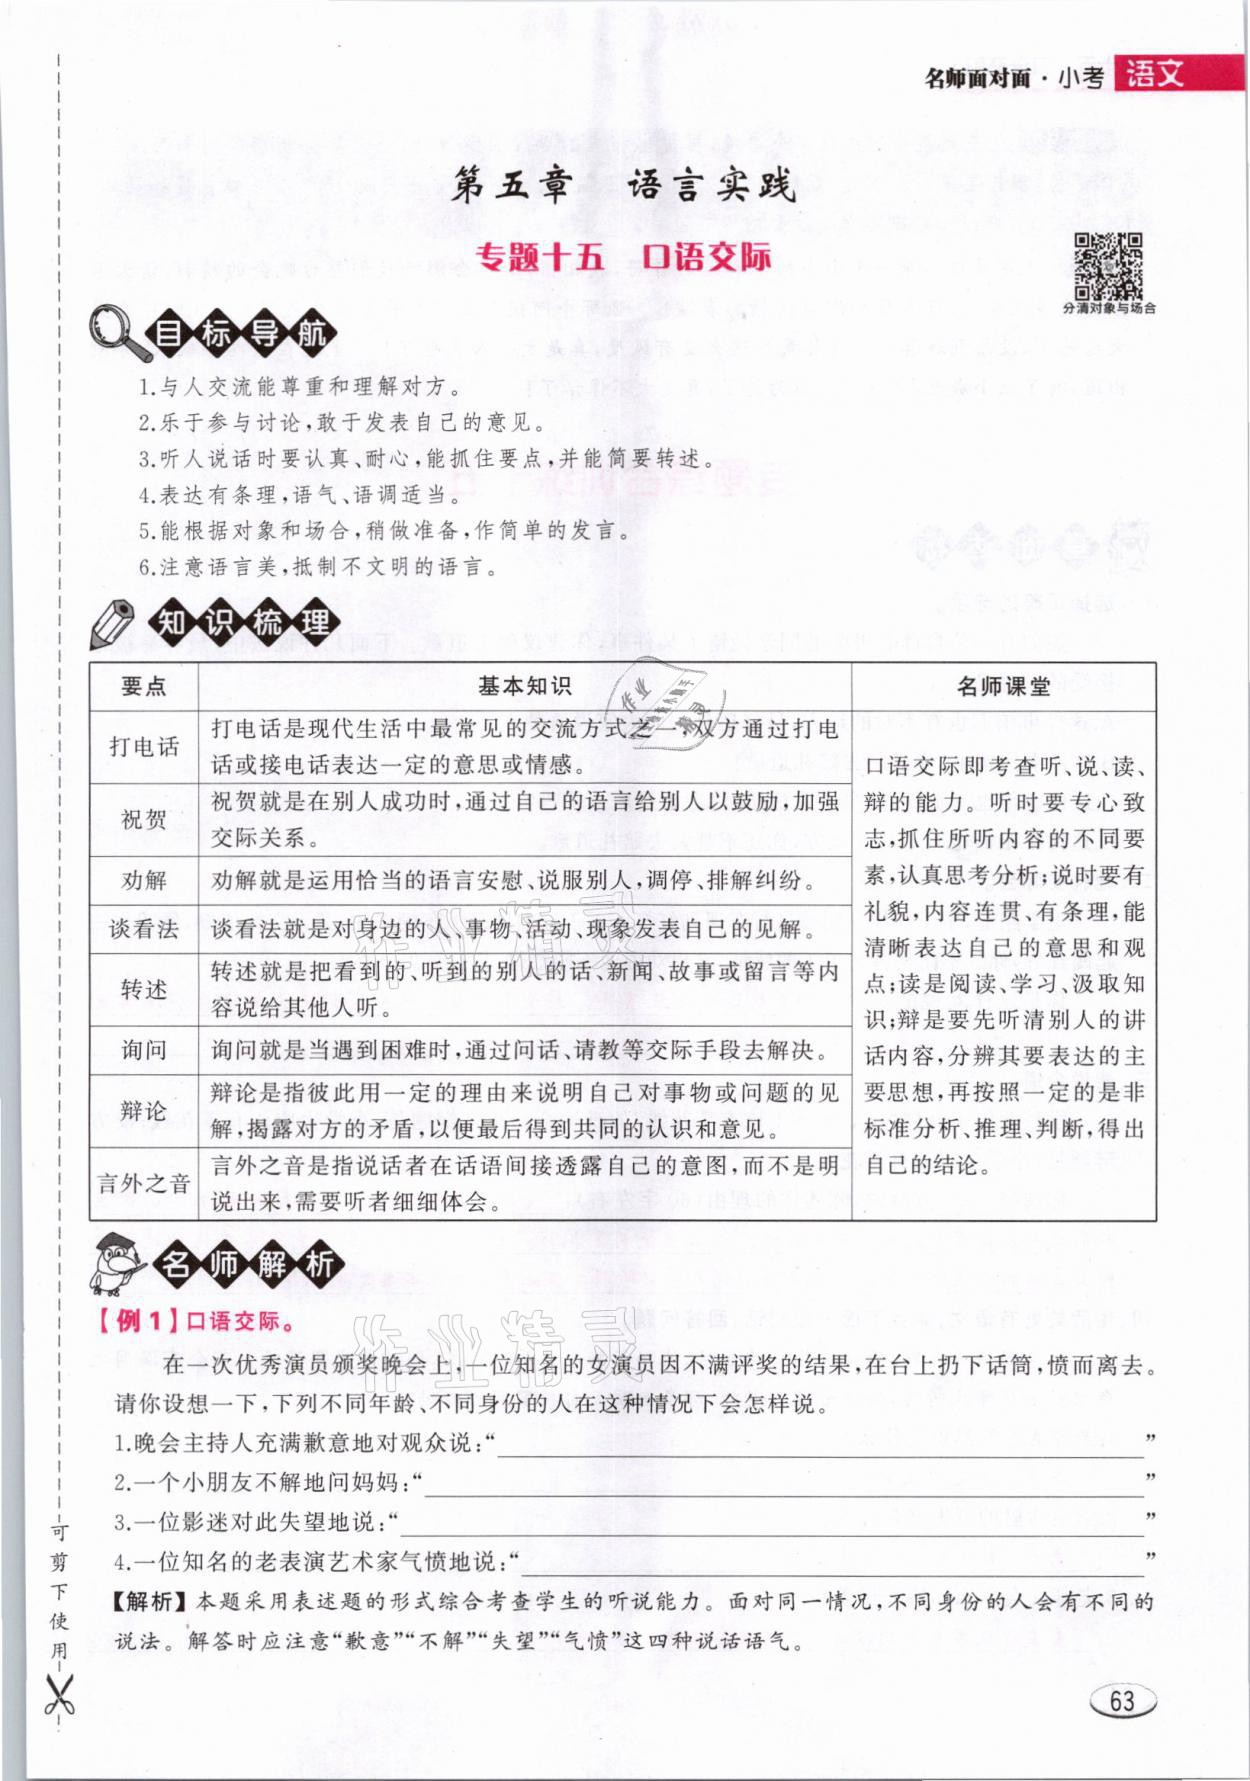 名师面对面·小考 语文
第五章 语言实践
专题十五 口语交际
分清对象与场合
目标导航
1.与人交流能尊重和理解对方。
2.乐于参与讨论,敢于发表自己的意见。
3.听人说话时要认真、耐心,能抓住要点,并能简要转述。
4.表达有条理,语气、语调适当。
5.能根据对象和场合,稍做准备,作简单的发言。
6.注意语言美,抵制不文明的语言。
知识梳理
要点 基本知识 名师课堂
打电话
打电话是现代生活中最常见的交流方式之一,双方通过打电
话或接电话表达一定的意思或情感。
祝贺
祝贺就是在别人成功时,通过自己的语言给别人以鼓励,加强
交际关系。
劝解 劝解就是运用恰当的语言安慰、说服别人,调停、排解纠纷。
谈看法 谈看法就是对身边的人、事物、活动、现象发表自己的见解。
转述
转述就是把看到的、听到的别人的话、新闻、故事或留言等内
容说给其他人听。
询问 询问就是当遇到困难时,通过问话、请教等交际手段去解决。
辩论
辩论是指彼此用一定的理由来说明自己对事物或问题的见
解,揭露对方的矛盾,以便最后得到共同的认识和意见。
言外之音
言外之音是指说话者在话语间接透露自己的意图,而不是明
说出来,需要听者细细体会。
口语交际即考查听、说、读、
辩的能力。听时要专心致
志,抓住所听内容的不同要
素,认真思考分析;说时要有
礼貌,内容连贯、有条理,能
清晰表达自己的意思和观
点;读是阅读、学习、汲取知
识;辩是要先听清别人的讲
话内容,分辨其要表达的主
要思想,再按照一定的是非
标准分析、推理、判断,得出
自己的结论。
名师解析
【例1】口语交际。
在一次优秀演员颁奖晚会上,一位知名的女演员因不满评奖的结果,在台上扔下话筒,愤而离去。
请你设想一下,下列不同年龄、不同身份的人在这种情况下会怎样说。
1.晚会主持人充满歉意地对观众说:“ ”
2.一个小朋友不解地问妈妈:“ ”
3.一位影迷对此失望地说:“ ”
4.一位知名的老表演艺术家气愤地说:“ ”
【解析】本题采用表述题的形式综合考查学生的听说能力。面对同一情况,不同身份的人会有不同的
说法。解答时应注意“歉意”“不解”“失望”“气愤”这四种说话语气。
可剪下使用
63
作业精灵
作业精灵